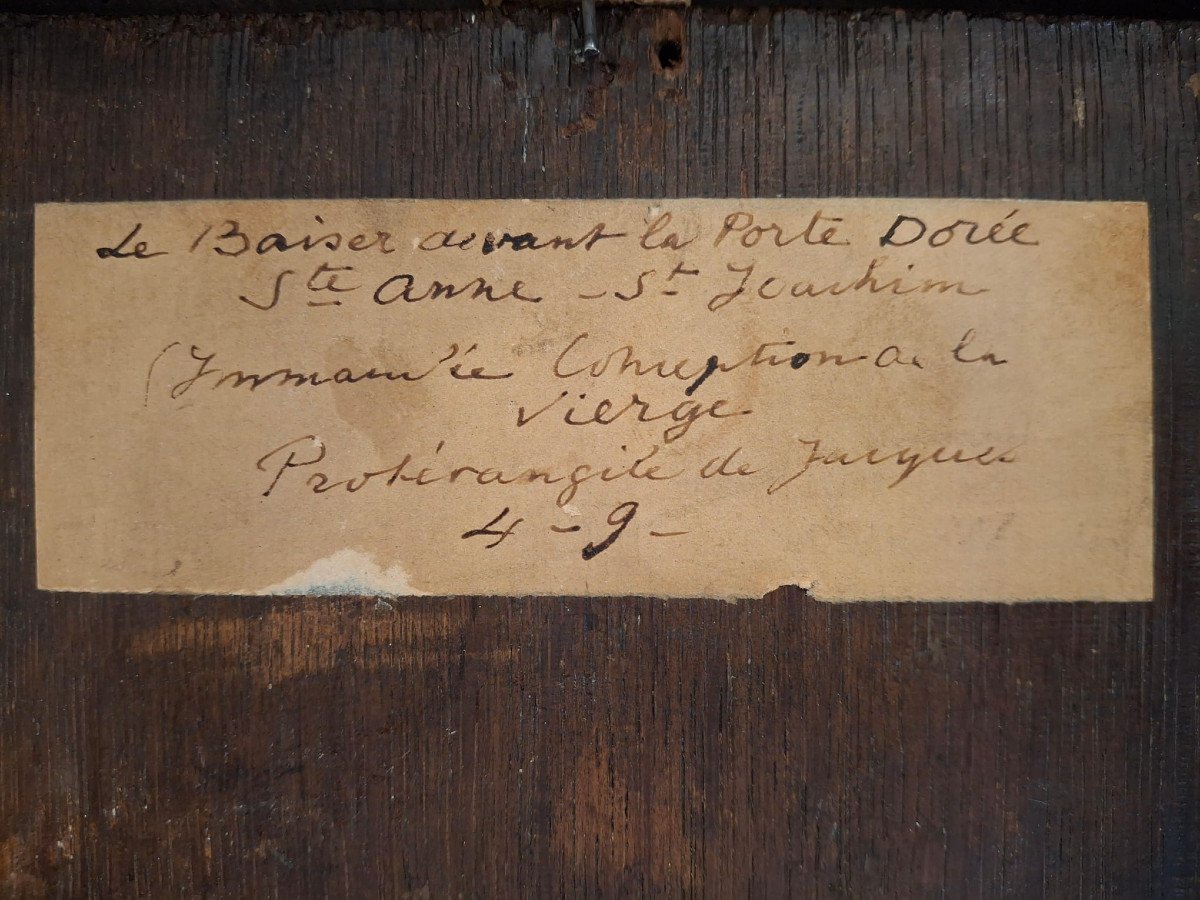 Le Baiser devant la Porte Dorée
Ste Anne - St Joachim
(Immaculée Conception de la
Vierge
Protévangile de Jacques
4 - 9 -